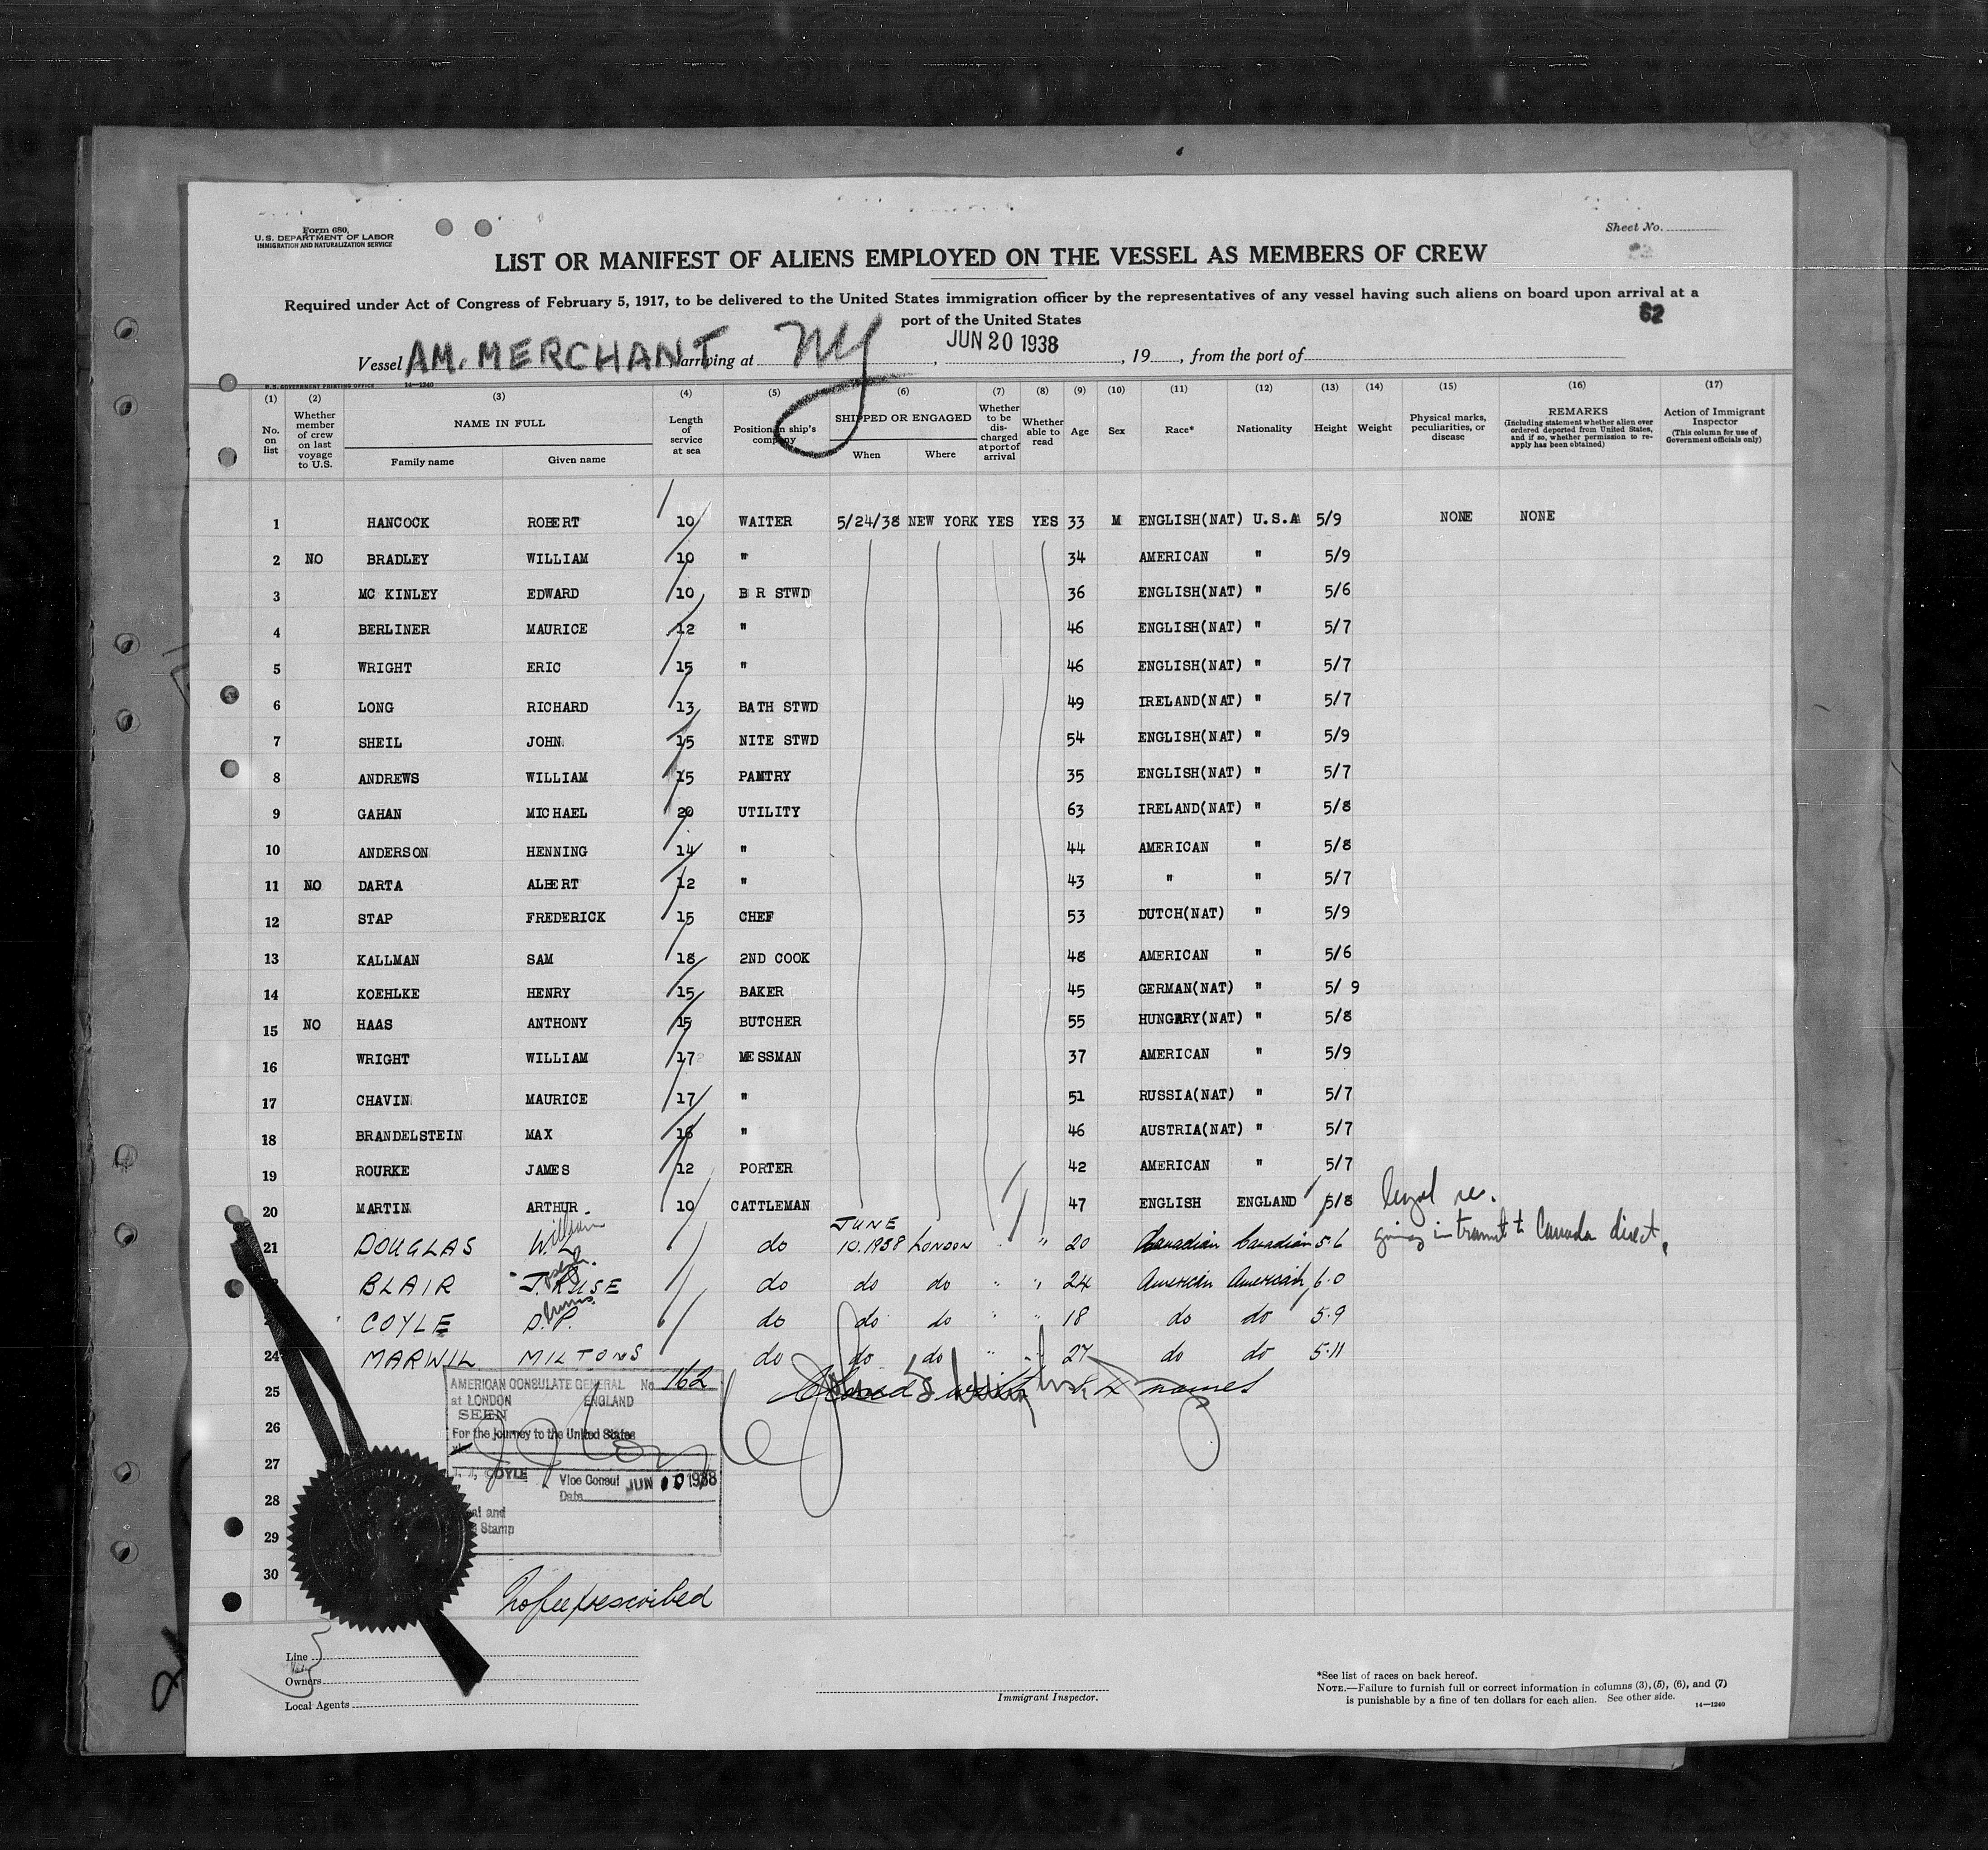 Form 680,
U. S. DEPARTMENT OF LABOR
IMMIGRATION AND NATURALIZATION SERVICE
Sheet No.
LIST OR MANIFEST OF ALIENS EMPLOYED ON THE VESSEL AS MEMBERS OF CREW
Required under Act of Congress of February 5, 1917, to be delivered to the United States immigration officer by the representatives of any vessel having such aliens on board upon arrival at a
port of the United States
62
Vessel AM. MERCHANT, arriving at NY, JUN 20 1938, 19, from the port of
U.S. GOVERNMENT PRINTING OFFICE 14—1240
(1) (2) (3) (4) (5) (6) (7) (8) (9) (10) (11) (12) (13) (14) (15) (16) (17)
No. on list
Whether member of crew on last voyage to U.S.
NAME IN FULL
Family name
Given name
Length of service at sea
Position in ship's company
SHIPPED OR ENGAGED
When
Where
Whether to be discharged at port of arrival
Whether able to read
Age
Sex
Race*
Nationality
Height
Weight
Physical marks, peculiarities, or disease
REMARKS
(Including statement whether alien ever ordered deported from United States, and if so, whether permission to reapply has been obtained)
Action of Immigrant Inspector
(This column for use of Government officials only)
1 HANCOCK ROBERT 10 WAITER 5/24/38 NEW YORK YES YES 33 M ENGLISH(NAT) U.S.A 5/9 NONE NONE
2 NO BRADLEY WILLIAM 10 " 34 AMERICAN " 5/9
3 MC KINLEY EDWARD 10 B R STWD 36 ENGLISH(NAT) " 5/6
4 BERLINER MAURICE 12 " 46 ENGLISH(NAT) " 5/7
5 WRIGHT ERIC 15 " 46 ENGLISH(NAT) " 5/7
6 LONG RICHARD 13 BATH STWD 49 IRELAND(NAT) " 5/7
7 SHEIL JOHN 15 NITE STWD 54 ENGLISH(NAT) " 5/9
8 ANDREWS WILLIAM 15 PANTRY 35 ENGLISH(NAT) " 5/7
9 GAHAN MICHAEL 20 UTILITY 63 IRELAND(NAT) " 5/8
10 ANDERSON HENNING 14 " 44 AMERICAN " 5/8
11 NO DARTA ALBERT 12 " 43 " " 5/7
12 STAP FREDERICK 15 CHEF 53 DUTCH(NAT) " 5/9
13 KALLMAN SAM 18 2ND COOK 48 AMERICAN " 5/6
14 KOEHLKE HENRY 15 BAKER 45 GERMAN(NAT) " 5/ 9
15 NO HAAS ANTHONY 15 BUTCHER 55 HUNGARY(NAT) " 5/8
16 WRIGHT WILLIAM 17 MESSMAN 37 AMERICAN " 5/9
17 CHAVIN MAURICE 17 " 51 RUSSIA(NAT) " 5/7
18 BRANDELSTEIN MAX 16 " 46 AUSTRIA(NAT) " 5/7
19 ROURKE JAMES 12 PORTER 42 AMERICAN " 5/7
20 MARTIN ARTHUR 10 CATTLEMAN 47 ENGLISH ENGLAND 5/8 legal res.
William
21 DOUGLAS W. L. do JUNE 10.1938 LONDON " " 20 Canadian Canadian 5.6 going in transit to Canada direct.
BLAIR do do do " " 24 American American 6.0
COYLE D. P. do do do " " 18 do do 5.9
24 MARWIL MILTON S do do do " " 27 do do 5.11
25 names
26
27
28
29
30
AMERICAN CONSULATE GENERAL No. 162
at LONDON ENGLAND
SEEN
For the journey to the United States
J. J. COYLE Vice Consul
Date JUN 10 1938
Stamp
No fee prescribed
Line
Owners
Local Agents
Immigrant Inspector.
*See list of races on back hereof.
NOTE.—Failure to furnish full or correct information in columns (3), (5), (6), and (7)
is punishable by a fine of ten dollars for each alien. See other side.
14—1240